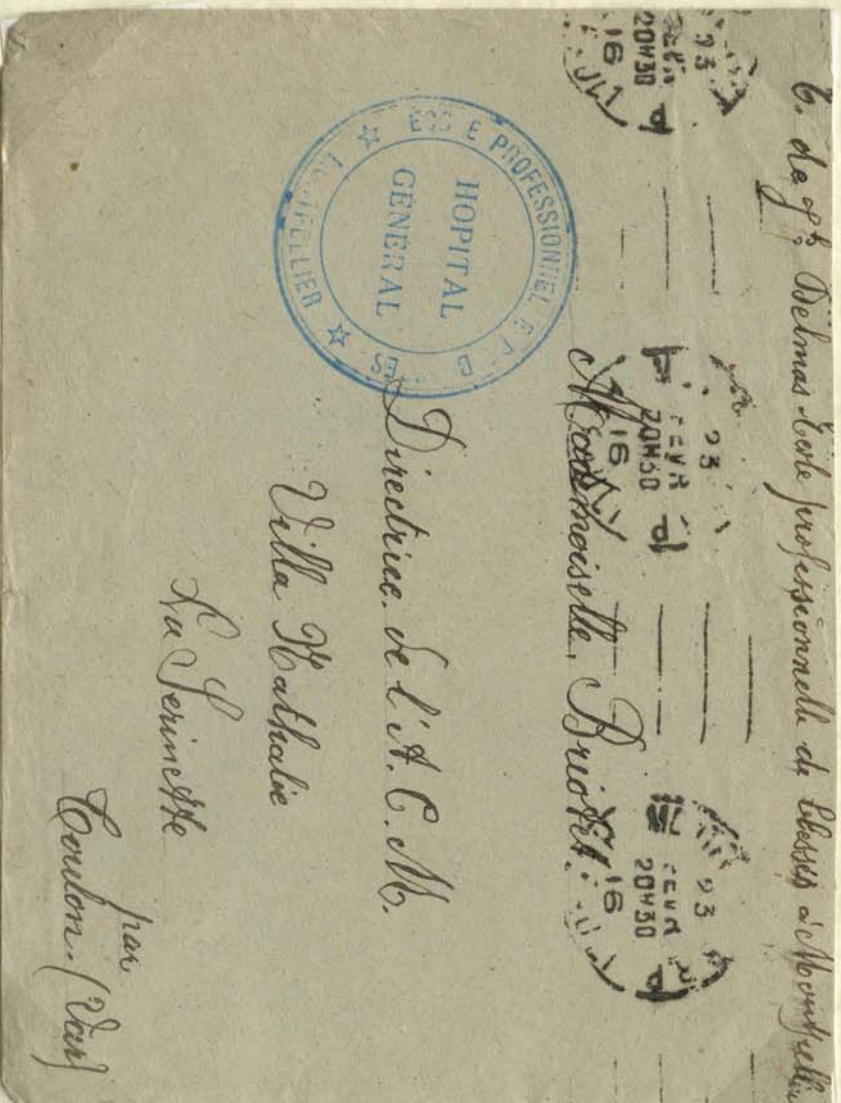 Delmas École professionnelle de blessés à Montpellier
23
FEVR
20H30
16
23
FEVR
20H30
16
23
FEVR
20H30
16
PROFESSIONNEL
HOPITAL
GENERAL
Mademoiselle
Directrice de l'A.C.M.
Villa Nathalie
La Serinette
par
Toulon. (Var)